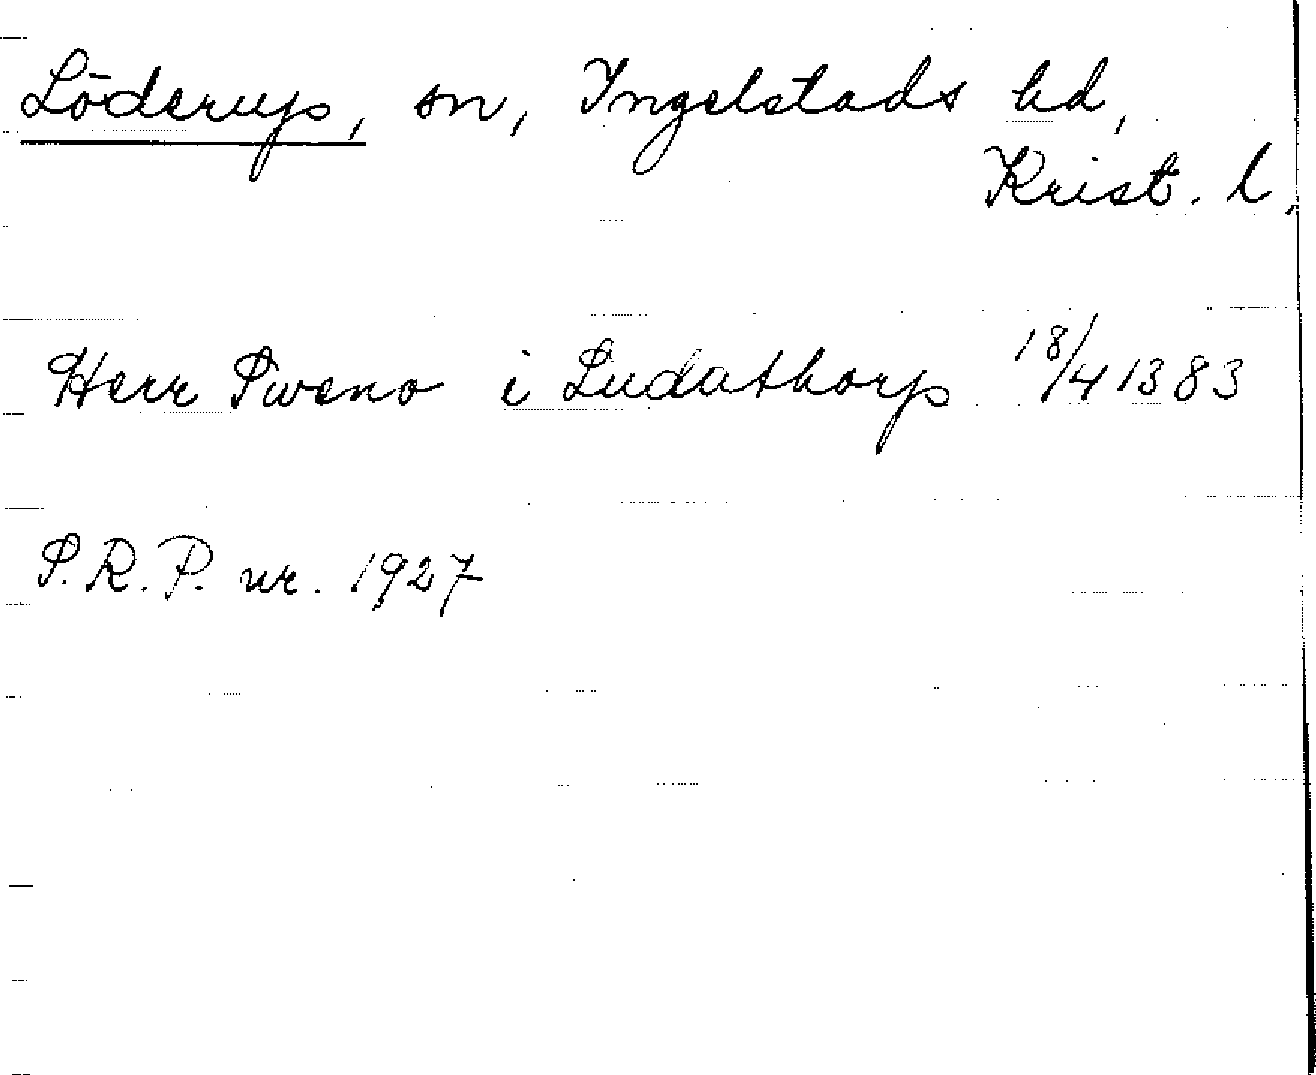 Löderup, sn, Ingelstads hd,
Krist. l.
Herr Sweno i Ludathorp 18/4 1383
S.R.P. nr. 1927